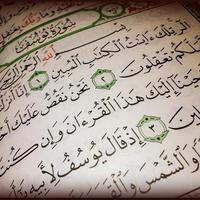 سُورَةُ يُوسُفَ
بِسْمِ ٱللَّهِ ٱلرَّحْمَٰنِ
الٓر تِلْكَ ءَايَٰتُ ٱلْكِتَٰبِ ٱلْمُبِينِ ١ إِنَّآ أَنزَلْ
لَّكُمْ تَعْقِلُونَ ٢ نَحْنُ نَقُصُّ عَلَيْكَ أَحْ
حَيْنَآ إِلَيْكَ هَٰذَا ٱلْقُرْءَانَ وَإِن كُنتَ
لِينَ ٣ إِذْ قَالَ يُوسُفُ لِأَبِيهِ
وَٱلشَّمْسَ وَٱلْقَمَرَ